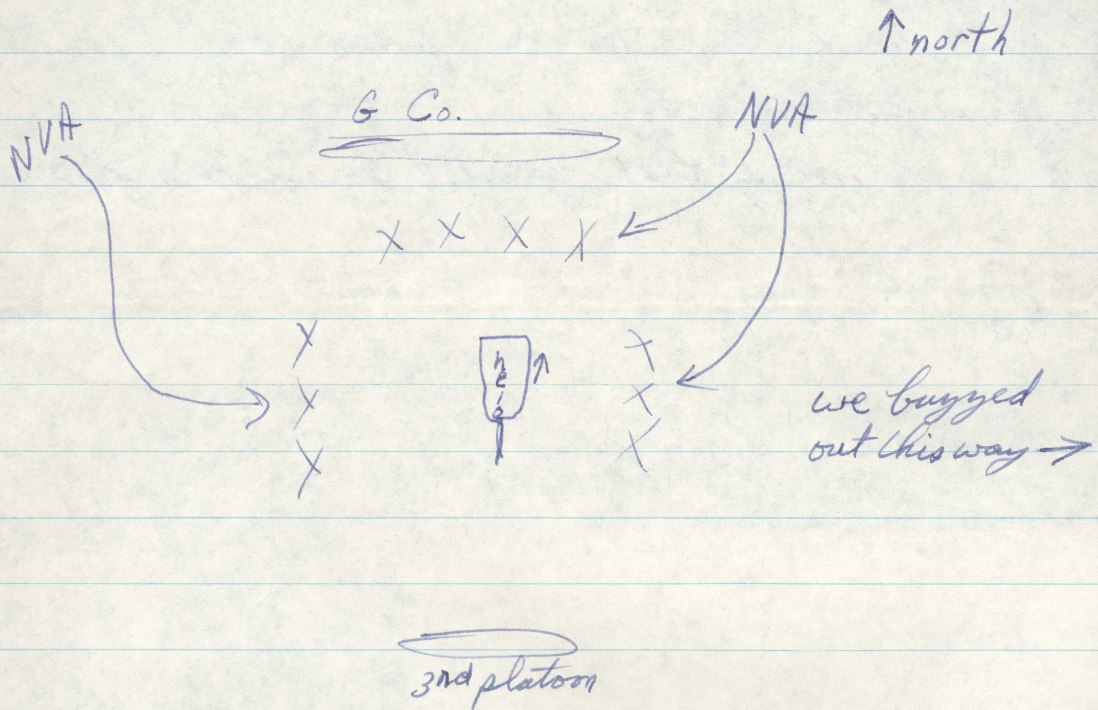 ↑ north
G Co.
NVA
NVA
X X X X
X
X
X
helo ↑
X
X
X
we buzzed
out this way →
3nd platoon